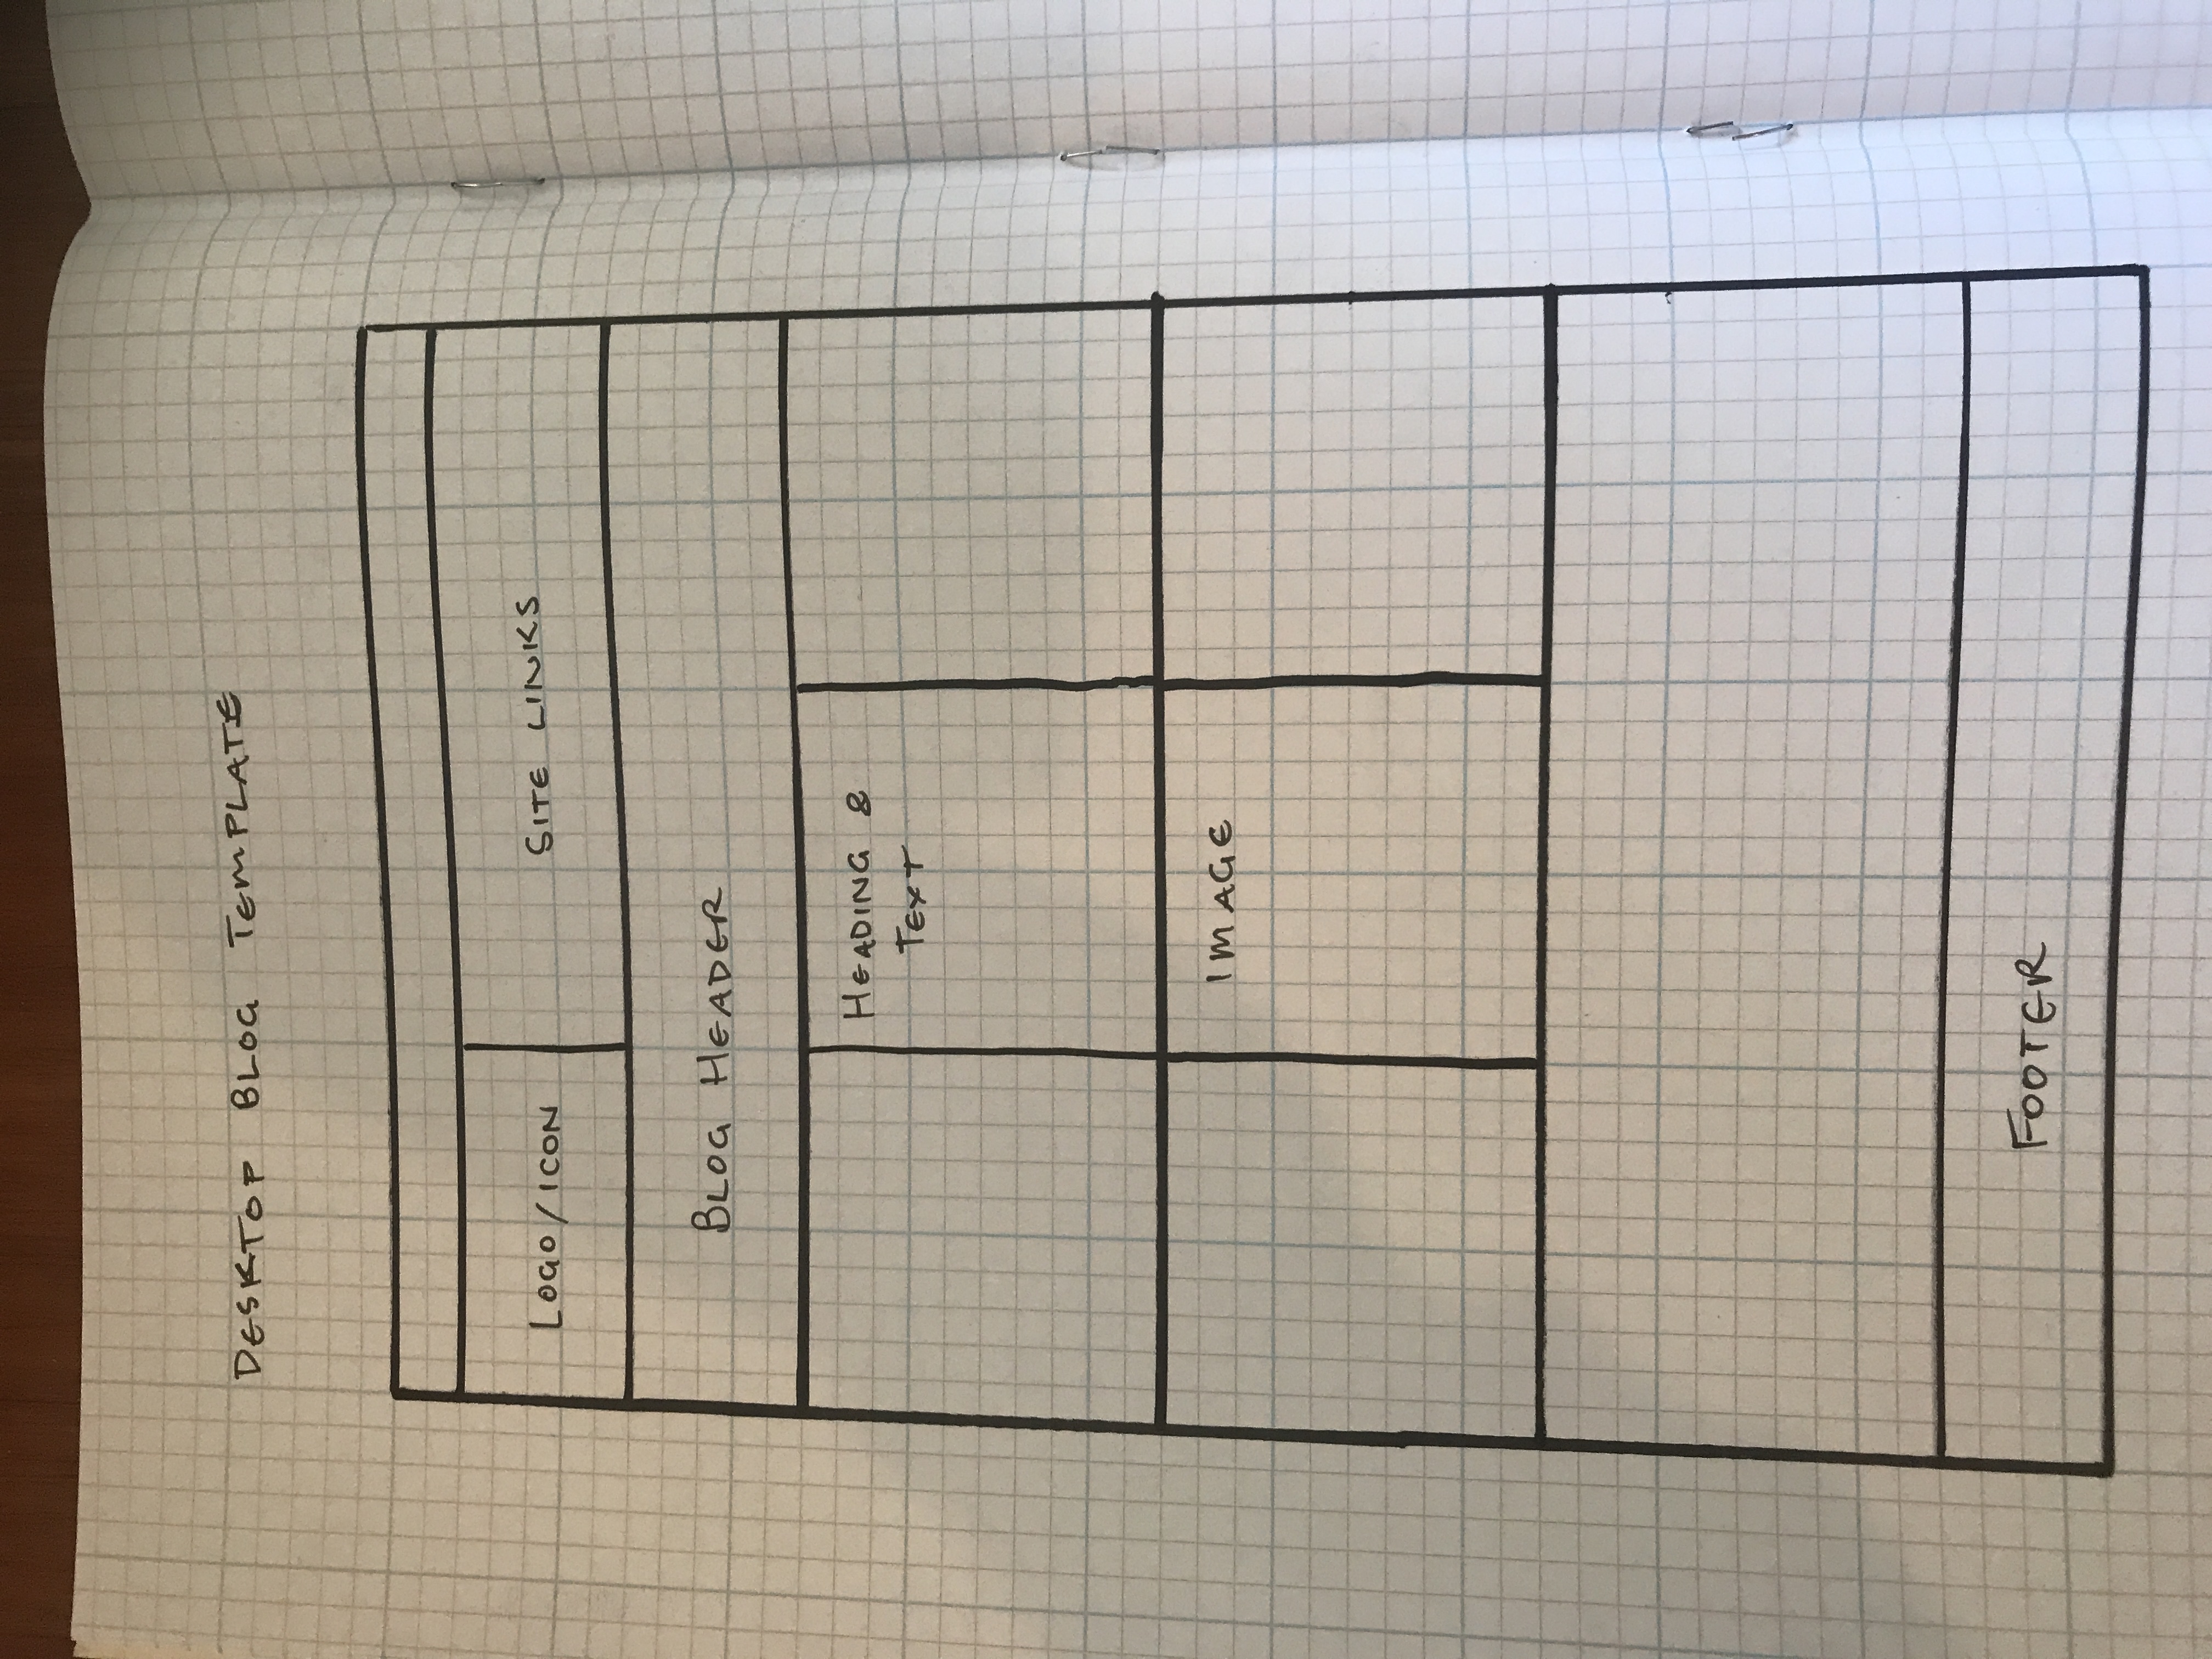 DESKTOP BLOG TEMPLATE
LOGO/ICON
SITE LINKS
BLOG HEADER
HEADING &
TEXT
IMAGE
FOOTER